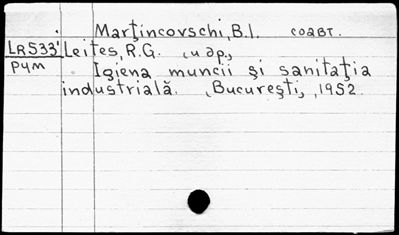 Marţincovschi, B.I. соавт.
LR533' Leites, R.G. и др.,
Рум Igiena muncii şi sanitaţia
industrială. Bucureşti, 1952.